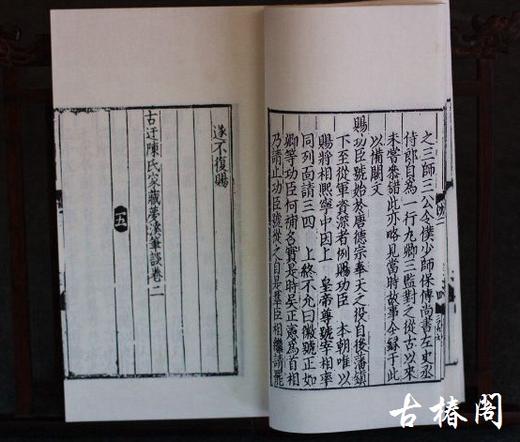 之三師三公令僕少師保傅尚書左史丞
侍郎自為一行九卿三監對之從古以來
未嘗參錯此亦略見當時故事今録于此
以備闕文
賜功臣號始於唐德宗奉天之役自後藩鎮
下至從軍資深者例賜功臣 本朝唯以
賜將相熙寧中因上 皇帝尊號宰相率
同列面請三四 上終不允曰徽號正如
卿等功臣何補名實是時吳正憲為首相
乃請止功臣號從之自是羣臣相繼請罷
遂不復賜
古迂陳氏家藏夢溪筆談卷二
十五
古椿阁